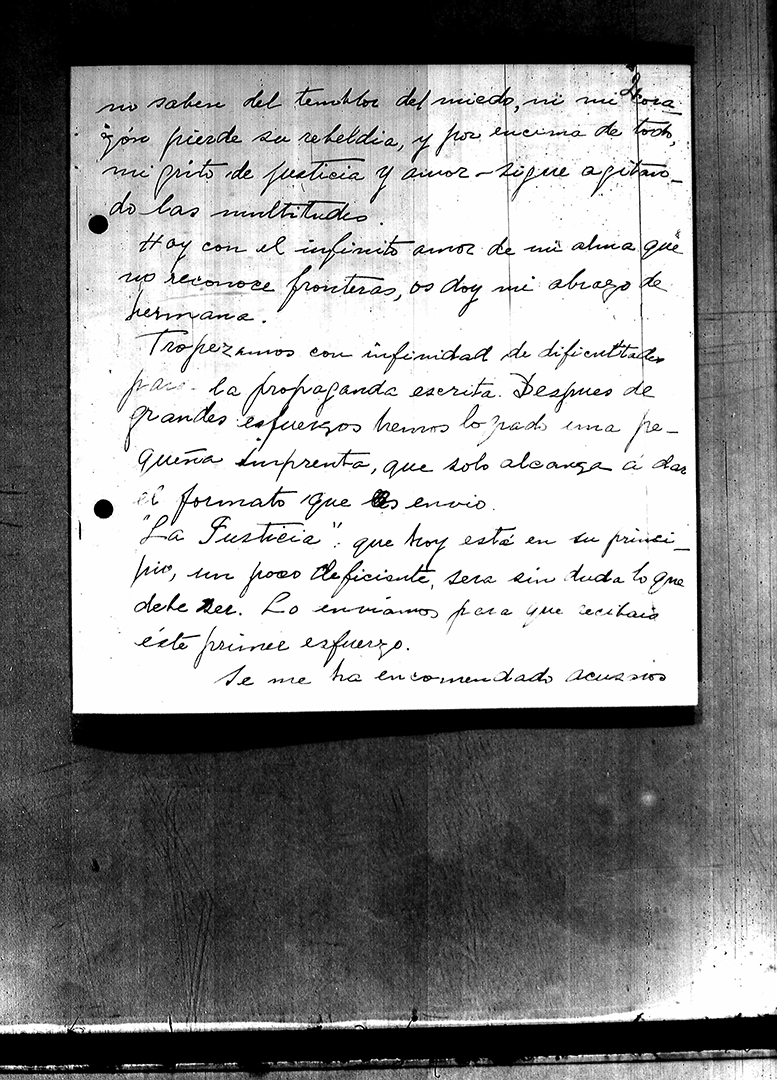 2
no saben del temblor del miedo, ni mi cora
zón pierde su rebeldia, y por encima de todo,
mi grito de justicia y amor - sigue agitan-
do las multitudes.
Hoy con el infinito amor de mi alma que
no reconoce fronteras, os doy mi abrazo de
hermana.
Tropezamos con infinidad de dificultades
para la propaganda escrita. Despues de
grandes esfuerzos hemos logradо una pe-
queña imprenta, que solo alcanza á dar
el formato que os envio.
"La Justicia": que hoy está en su princi-
pio, un poco deficiente, sera sin duda lo que
debe ser. Lo enviamos para que recibais
éste primer esfuerzo.
Se me ha encomendado